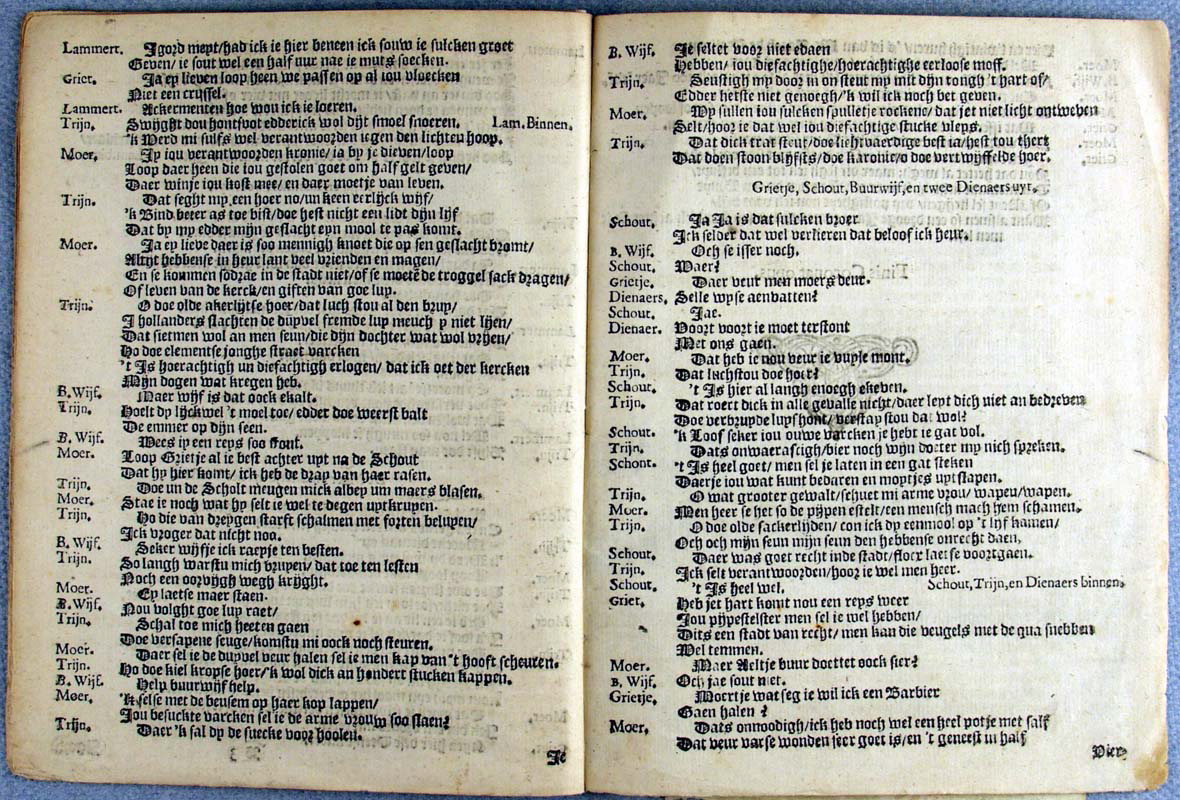 Lammert. Igord mept/had ick ie hier beneen ick souw ie sulcken groet
Geven/ ie sout wel een half uur nae ie muts soecken.
Griet. Ja ey lieven loop heen we passen op al iou vloecken
Niet een crussel.
Lammert. Ackermenten hoe wou ick ie loeren.
Trijn. Swijght dou hontsvot edderick wol dijt smoel snoeren. Lam. Binnen.
'k Werd mi sulfs wel verantwoorden iegen den lichten hoop.
Moer. Jy iou verantwoorden kronie/ ia by je dieven/loop
Loop daer heen die iou gestolen goet om half gelt geven/
Daer winje iou kost mee/ en daer moetje van leven.
Trijn. Dat seght my een hoer no/un keen eerlijck wijf/
'k Bind beter as toe bist/ doe hest nicht een lidt dijn lijf
Dat by my edder mijn geslacht eyn mool te pas komt.
Moer. Ja ey lieve daer is soo mennigh knoet die op sen geslacht bromt/
Altijt hebbense in heur lant veel vrienden en magen/
En se kommen sodrae in de stadt niet/ of se moetē de troggel sack dragen/
Of leven van de kerck/en giften van goe luy.
Trijn. O doe olde akerlijtse hoer/dat luch stou al den bruy/
I hollanders slachten de duyvel fremde luy meuch y niet lyen/
Dat sietmen wol an men seun/die dijn dochter wat wol vryen/
Ho doe elementse jonghe straet varcken
't Is hoerachtigh un diefachtigh erlogen/ dat ick oet der kercken
Mijn dogen wat kregen heb.
B. Wijf. Maer wijf is dat oock ekalt.
Trijn. Hoelt dy lijckwel 't moel toe/ edder doe weerst balt
De emmer op dijn seen.
B. Wijf. Wees iy een reys soo stont.
Moer. Loop Grietje al ie best achter uyt na de Schout
Dat hy hier komt/ ick heb de dray van haer rasen.
Trijn. Doe un de Scholt meugen mick albey um maers blasen.
Moer. Stae ie noch wat hy selt ie wel te degen uytkruypen.
Trijn. Ho die van dreygen starft schalmen met forten beluyen/
Ick vroger dat nicht noo.
B. Wijf. Seker wijfje ick raepje ten besten.
Trijn. So langh warstu mich bruyen/ dat toe ten lesten
Noch een oorvijgh wegh krijght.
Moer. Ey laetse maer staen.
B. Wijf. Nou volght goe luy raet/
Trijn. Schal toe mich heeten gaen
Doe versapene seuge/komstu mi oock noch steuren.
Moer. Daer sel ie de duyvel veur halen sel ie men kap van 't hooft scheuren.
Trijn. Ho doe kiel kropse hoer/'k wol dick an hondert stucken kappen.
B. Wijf. Help buurwijf help.
Moer. 'k selse met de beusem op haer kop lappen/
Jou besuckte varcken sel ie de arme vrouw soo slaen?
Trijn. Daer 'k sal dy de suecke voor hoolen.
Je
B. Wijf. Je seltet voor niet edaen
Hebben/ iou diefachtighe/hoerachtighe eerloose moff.
Trijn. Seustigh my door in on steut my mit dijn tongh 't hart of/
Edder herste niet genoegh/'k wil ick noch bet geven.
Moer. Wy sullen iou sulcken spulletje rockene/ dat jet niet licht ontweben
Selt/hoor ie dat wel iou diefachtige stucke vleys.
Trijn. Dat dick trat steut/doe lichtvaerdige best ia/hest tou thert
Dat doen stoon blijfsts/doe karonie/o doe vertwijffelde hoer.
Grietje, Schout, Buurwijf, en twee Dienaers uyt.
Schout. Ja Ja is dat sulcken broer
Ick selder dat wel verlieren dat beloof ick heur.
B. Wijf. Och se isser noch.
Schout. Waer?
Grietje. Daer veur men moers deur.
Dienaers. Selle wyse aenvatten?
Schout. Jae.
Dienaer. Voort voort ie moet terstont
Met ons gaen.
Moer. Dat heb ie nou veur ie vuyle mont.
Trijn. Dat luchstou doe hoer?
Schout. 't Is hier al langh enoegh ekeven.
Trijn. Dat roert dick in alle gevalle nicht/daer leyt dich niet an bedreven
Doe verbruyde luys hont/ verstaystou dat wol?
Schout. 'k Loof seker iou ouwe varcken je hebt ie gat vol.
Trijn. Dats onwaerastigh/bier noch wijn dorter my nich spreken.
Schout. 't Is heel goet/ men sel je laten in een gat steken
Daerje iou wat kunt bedaren en moptjes uytslapen.
Trijn. O wat grooter gewalt/schuet mi arme vrou/ wapen/wapen.
Moer. Men heer se het so de pijpen estelt/een mensch mach hem schamen.
Trijn. O doe olde sackerlijden/ con ick dy eenmool op 't lijf kamen/
Och och mijn seun mijn seun den hebbense onrecht daen.
Schout. Daer was goet recht inde stadt/flocr laetse voortgaen.
Trijn. Ick selt verantwoorden/hoor ie wel men heer.
Schout. 't Is heel wel. Schout, Trijn, en Dienaers binnen.
Griet. Heb jet hart komt nou een reys weer
Jou pijpestelster men sel ie wel hebben/
Dits een stadt van recht/ men kan die veugels met de qua snebben
Wel temmen.
Moer. Maer Aeltje buur doettet oock sier?
B. Wijf. Och jae sout niet.
Grietje. Moertje wat seg ie wil ick een Barbier
Gaen halen?
Moer. Dats onnoodigh/ick heb noch wel een heel potje met salf
Dat veur varse wonden seer goet is/en 't geneest in half
Vier